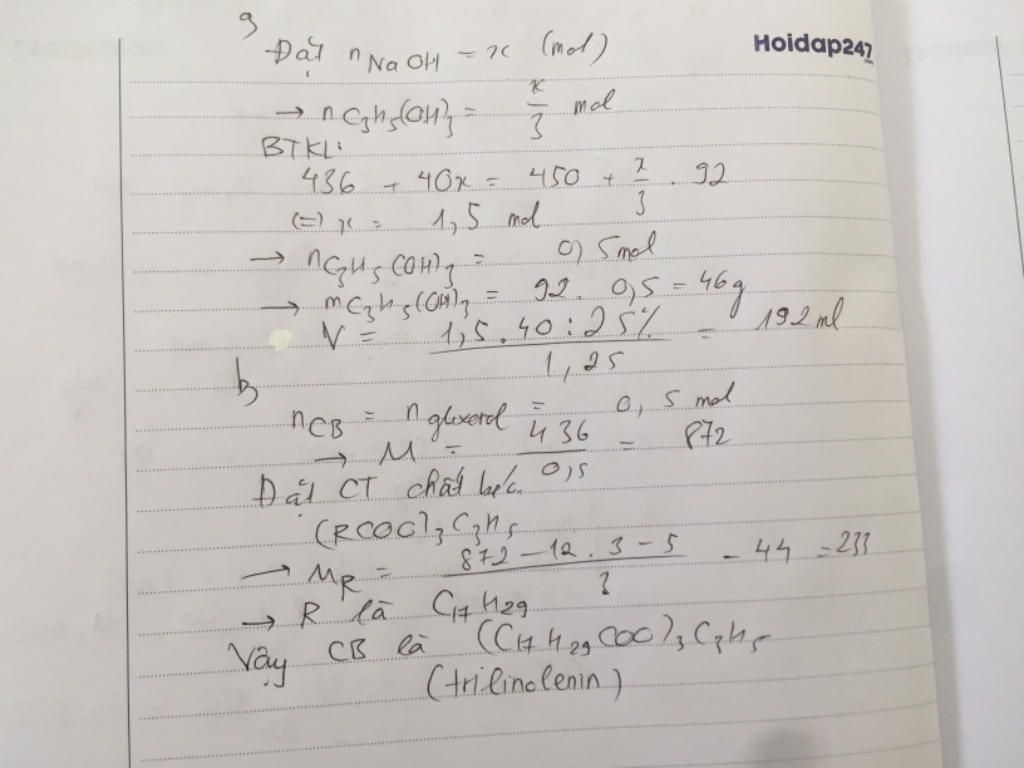 a,
Đặt n NaOH = x (mol)
Hoidap247
→ nC3H5(OH)3 = x/3 mol
BTKL:
436 + 40x = 450 + x/3 . 92
(=) x = 1,5 mol
→ nC3H5(OH)3 = 0,5 mol
→ mC3H5(OH)3 = 92 . 0,5 = 46g
V = 1,5 . 40 : 25% / 1,25 = 192 ml
b,
nCB = n glixerol = 0,5 mol
→ M = 436 / 0,5 = 872
Đặt CT chất béo
(RCOO)3C3H5
→ MR = 872 - 12 . 3 - 5 / 3 - 44 = 233
→ R là C17H29
Vậy CB là (C17H29COO)3C3H5
(trilinolenin)